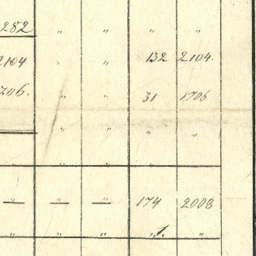 282 " " " "
2104 " " 132 2104.
706. " " 31 1706
" " " "
" " " "
— — — 174 2008
" " " 1. "